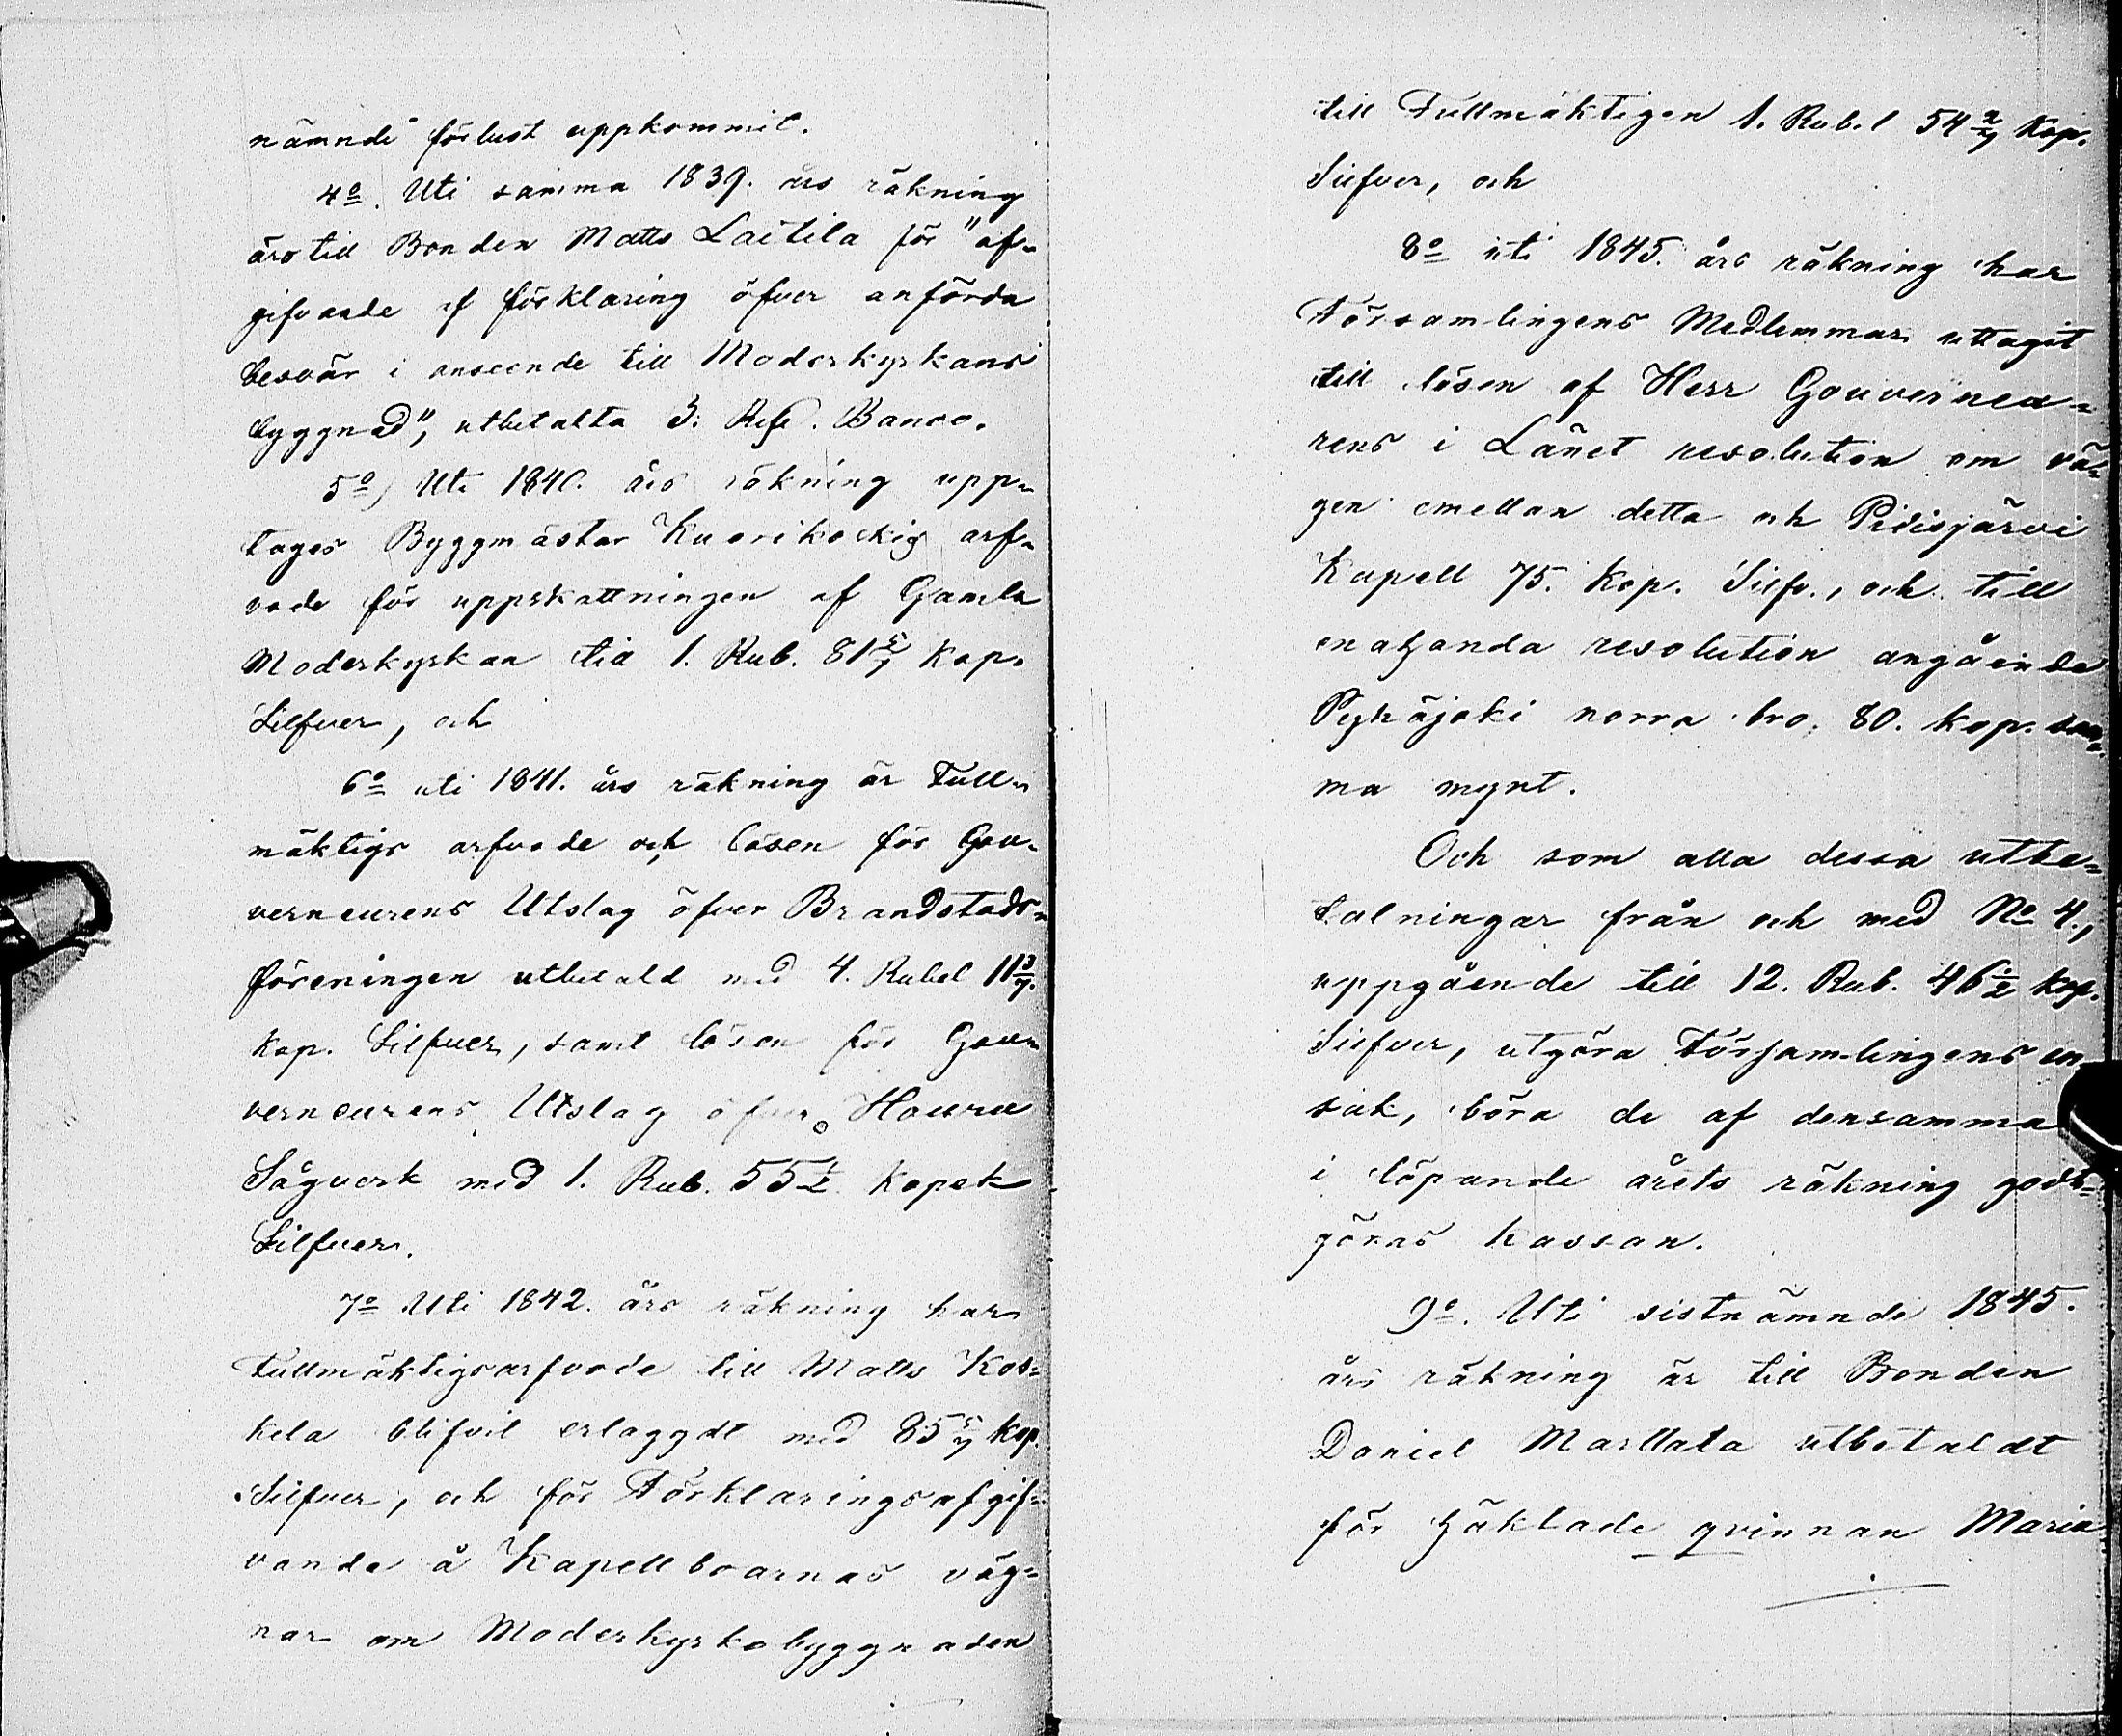 nämnde förlust uppkommit.
4º. Uti samma 1839. års räkning
äro till Bonden Matts Laitila för "af-
gifvande af förklaring öfver anförda
besvär i anseende till Moderkyrkans
byggnad", utbetalta 3. Rdr. Banco.
5º, Uti 1840. års räkning upp-
tages Byggmästar Kuorikoskis arf-
vode för uppskattningen af Gamla
Moderkyrkan till 1. Rub. 81 5/7 Kop.
Silfver, och
6º uti 1841. års räkning är Full-
mäktigs arfvode och lösen för Gou-
verneurens Utslag öfver Brandstods-
föreningen utbetald med 4. Rubel 11 3/7.
Kop. Silfver, samt lösen för Gou-
verneurens Utslag öfver Houru
Sågverk med 1. Rub. 55 Kopek
Silfver.
7º Uti 1842. års räkning har
Fullmäktigsarfvode till Matts Kos-
kela blifvit erlaggdt med 85 5/7 Kop.
Silfver, och för Förklarings afgif-
vande å Kapellboarnas väg-
nar om Moderkyrkobyggnaden
till Fullmäktigen 1. Rubel 54 2/7 Kop.
Silfver, och
8º uti 1845. års räkning har
Församlingens Medlemmar uttagit
till lösen af Herr Gouverneu-
rens i Länet resolution om vä-
gen emellan detta och Pidisjärvi
Kapell 75. Kop. Silfv., och till
enahanda resolution angående
Pyhäjoki norra bro, 80. kop. sam-
ma mynt.
Och som alla dessa utbe-
talningar från och med Nº 4.,
uppgående till 12. Rub. 46 1/2 kop.
Silfver, utgöra Församlingens en-
sak, böra de af densamma
i löpande årets räkning godt-
göras kassan.
9º. Uti sistnämnde 1845.
års räkning är till Bonden
Daniel Marttala utbetaldt
för häktade qvinnan Maria